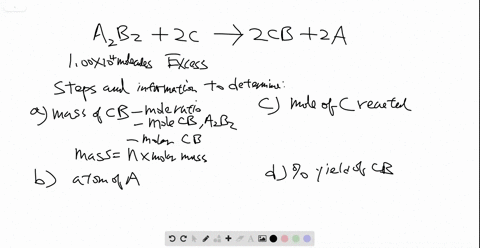 A₂B₂ + 2C → 2CB + 2A
1.00×10⁴ molecules Excess
Steps and information to determine:
a) mass of CB – mole ratio
– mole CB, A₂B₂
– molar CB
mass = n × molar mass
b) atom of A
c) mole of C reacted
d) % yield of CB